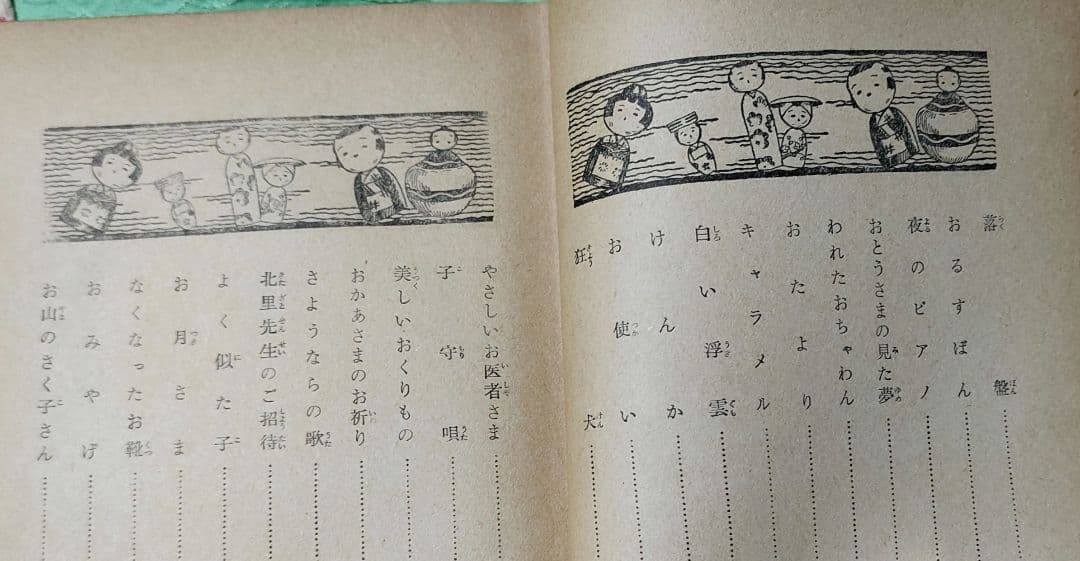 落盤
おるすばん
夜のピアノ
おとうさまの見た夢
われたおちゃわん
おたより
キャラメル
白い浮雲
けんか
お使い
狂犬
やさしいお医者さま
子守唄
美しいおくりもの
おかあさまのお祈り
さようならの歌
北里先生のご招待
よく似た子
お月さま
なくなったお靴
おみやげ
お山のさく子さん